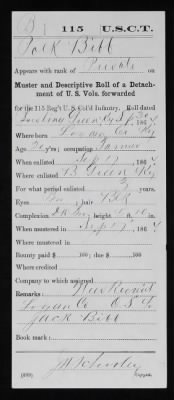 B | 115 | U.S.C.T.
Jack Bibb
Appears with rank of Private on
Muster and Descriptive Roll of a Detach-
ment of U. S. Vols. forwarded
for the 115 Reg't U.S. Col'd Infantry. Roll dated
Bowling Green Ky Sept 30, 1864
Where born Logan Co Ky
Age y'rs; occupation Farmer
When enlisted Sept 17, 1864
Where enlisted B. Green Ky
For what period enlisted 3 years.
Eyes ; hair Blk
Complexion ; height 5 ft. in.
When mustered in Sept 17, 1864
Where mustered in
Bounty paid $ 100; due $ 100
Where credited
Company to which assigned
Remarks: Recruit
Logan Co
Jack Bibb
Book mark:
(339) Copyist.